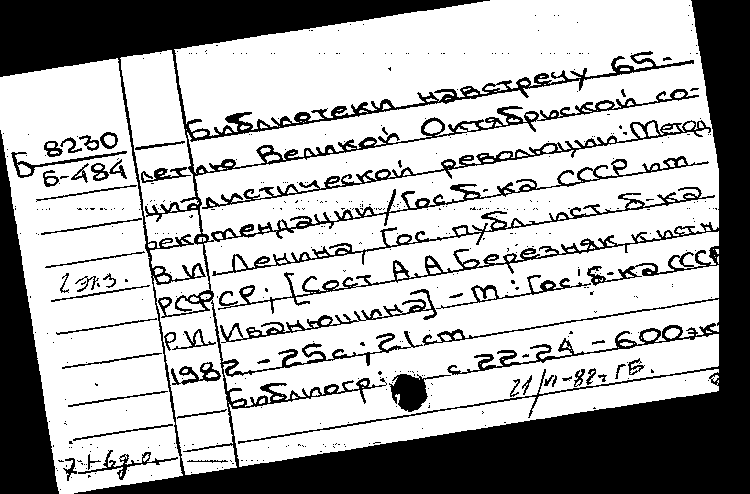 Библиотеки навстречу 65-
Б 8230
Б-484
летию Великой Октябрьской со-
циалистической революции: Метод.
рекомендации / Гос. б-ка СССР им.
В.И. Ленина, Гос. публ. ист. б-ка
2 экз.
РСФСР; [Сост. А.А. Березняк, к.ист.н.
Р.И. Иванюшина]. - М.: Гос. б-ка СССР
1982. - 25 с.; 21 см.
Библиогр.: с. 22-24. - 600 эк
21/VI-82г. ГБ.